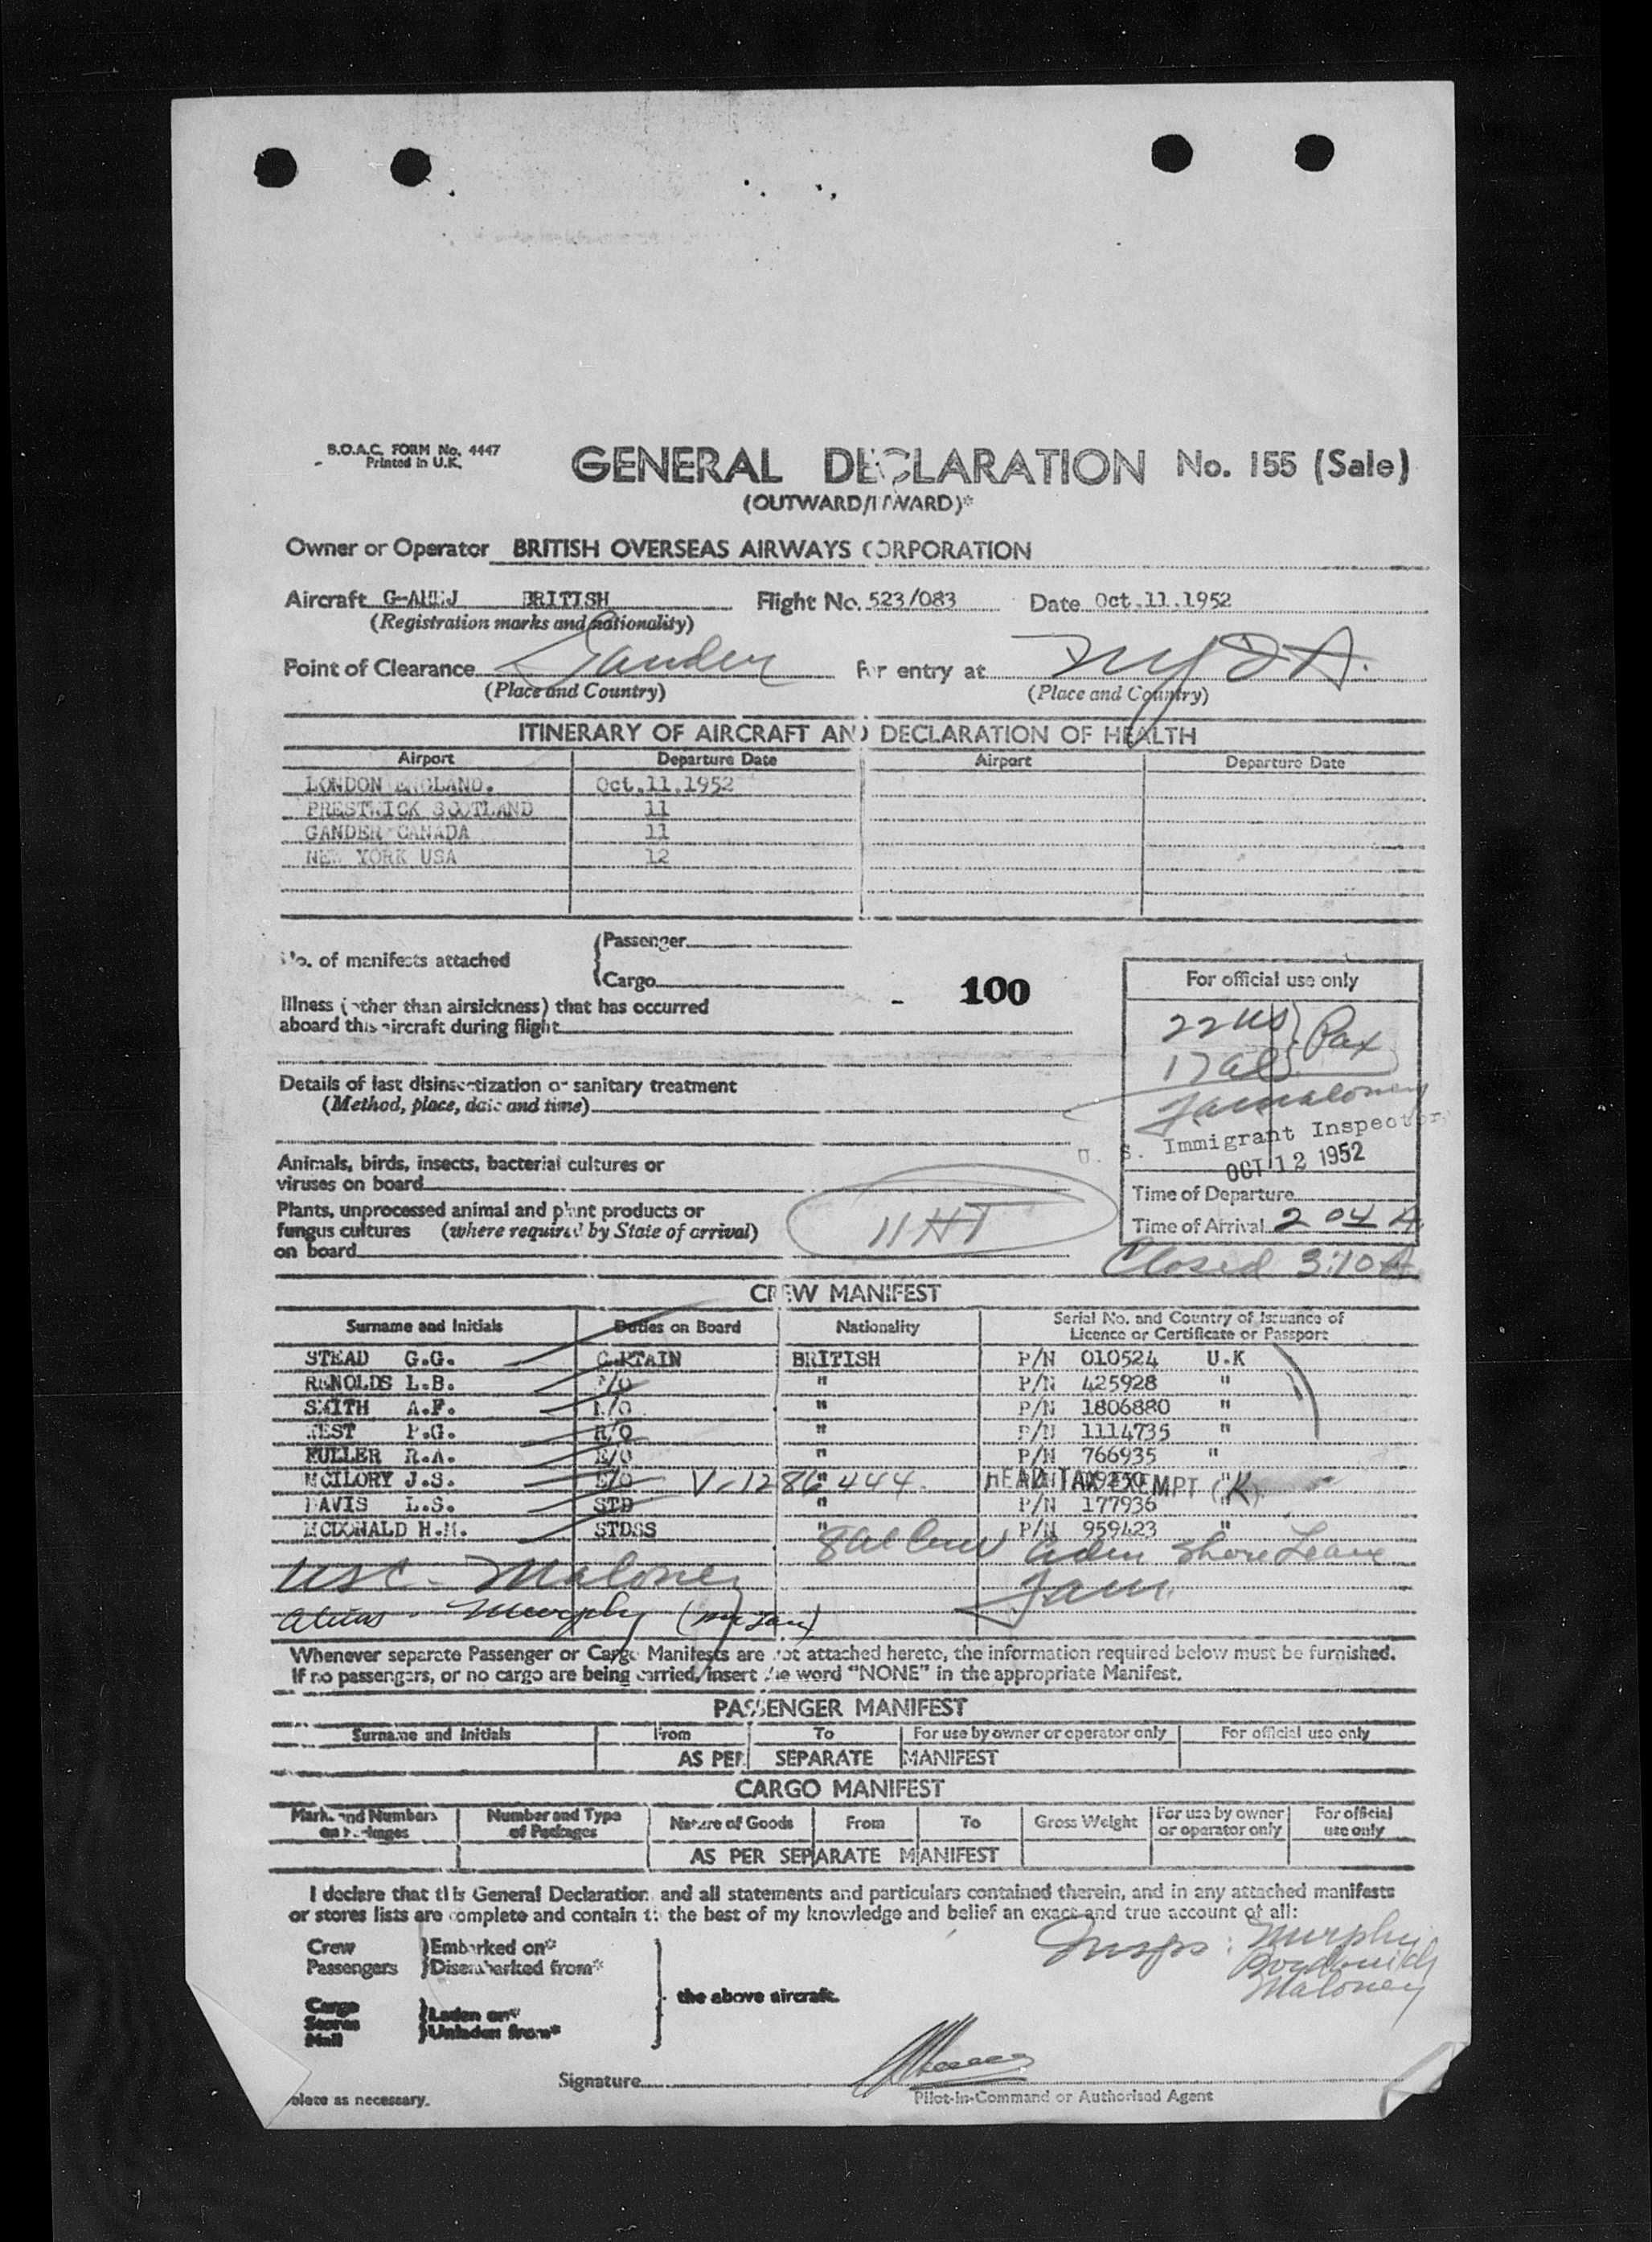 B.O.A.C. FORM No. 4447
Printed in U.K.
GENERAL DECLARATION No. 155 (Sale)
(OUTWARD/INWARD)*
Owner or Operator BRITISH OVERSEAS AIRWAYS CORPORATION
Aircraft BRITISH Flight No. 523/083 Date Oct.11.1952
(Registration marks and nationality)
Point of Clearance Gander For entry at
(Place and Country) (Place and Country)
ITINERARY OF AIRCRAFT AND DECLARATION OF HEALTH
Airport Departure Date Airport Departure Date
LONDON ENGLAND. Oct.11.1952
PRESTWICK SCOTLAND 11
GANDER CANADA 11
NEW YORK USA 12
No. of manifests attached
Passenger
Cargo
- 100
Illness (other than airsickness) that has occurred
aboard this aircraft during flight
Details of last disinsectization or sanitary treatment
(Method, place, date and time)
Animals, birds, insects, bacterial cultures or
viruses on board
Plants, unprocessed animal and plant products or
fungus cultures (where required by State of arrival)
on board
For official use only
22 US Pax
17 al
U. S. Immigrant Inspector
OCT 12 1952
Time of Departure
Time of Arrival 2 04 A
Closed 3:10 A
CREW MANIFEST
Surname and Initials Duties on Board Nationality Serial No. and Country of Issuance of
Licence or Certificate or Passport
STEAD G.G. CAPTAIN BRITISH P/N 010524 U.K
RENOLDS L.B. F/O " P/N 425928 "
SMITH A.F. " P/N 1806880 "
WEST P.G. R/O " P/N 1114735 "
FULLER R.A. E/O " P/N 766935 "
MCILORY J.S. E/O V-1286444 " HEAD TAX EXEMPT (K) "
DAVIS L.S. STD " P/N 177936 "
MCDONALD H.M. STDSS " P/N 959423 "
Shore Leave
USC - Maloney
Aliens - Murphy
Whenever separate Passenger or Cargo Manifests are not attached hereto, the information required below must be furnished.
If no passengers, or no cargo are being carried, insert the word "NONE" in the appropriate Manifest.
PASSENGER MANIFEST
Surname and Initials From To For use by owner or operator only For official use only
AS PER SEPARATE MANIFEST
CARGO MANIFEST
Marks and Numbers on Packages Number and Type of Packages Nature of Goods From To Gross Weight For use by owner or operator only For official use only
AS PER SEPARATE MANIFEST
I declare that this General Declaration and all statements and particulars contained therein, and in any attached manifests
or stores lists are complete and contain to the best of my knowledge and belief an exact and true account of all:
Crew Embarked on*
Passengers Disembarked from*
the above aircraft.
Cargo
Stores
Mail
Laden on*
Unladen from*
Insps: Murphy
Maloney
Signature
Pilot-in-Command or Authorised Agent
elete as necessary.